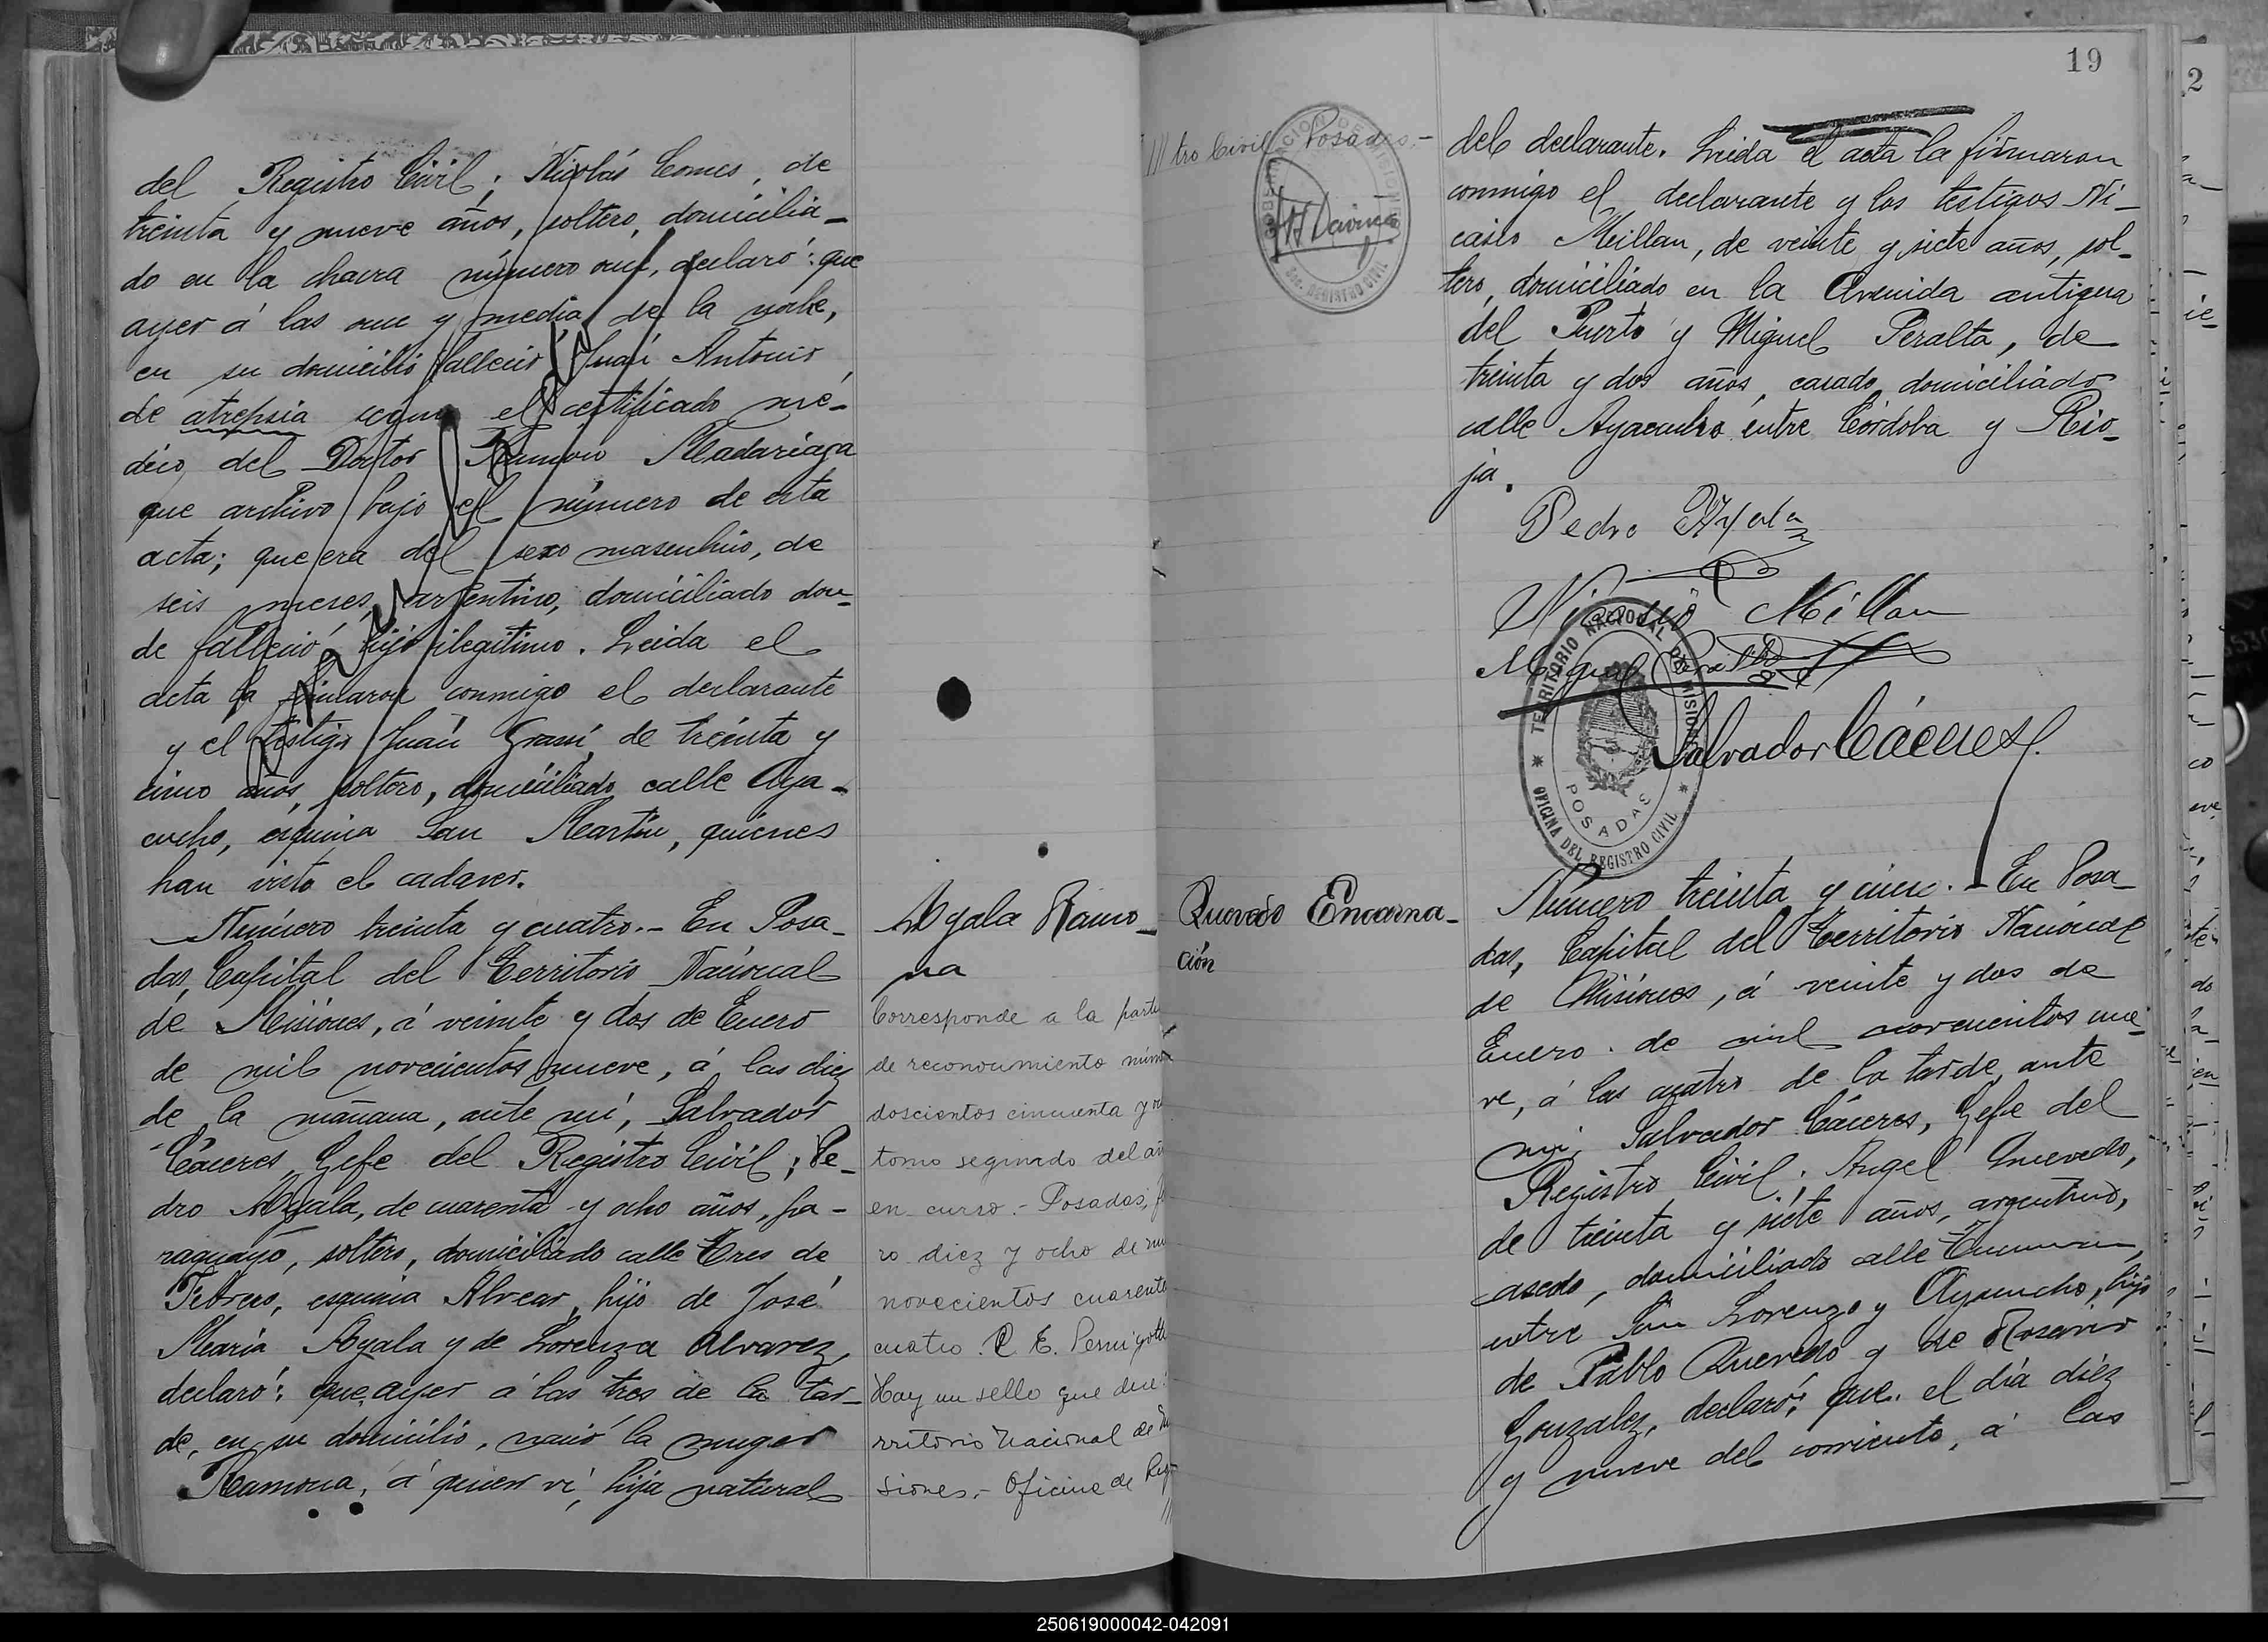 del Registro Civil; Nicolás Comes, de
treinta y nueve años, soltero, domicilia-
do en la chacra número once, declaró: que
ayer á las once y media de la noche,
en su domicilio falleció Juan Antonio
de atrepsia según el certificado mé-
dico del Doctor Ramón Madariaga
que archivo bajo el número de esta
acta; que era del sexo masculino, de
seis meses, argentino, domiciliado don-
de falleció, hijo ilegitimo. Leida el
acta la firmaron conmigo el declarante
y el testigo Juan Grassi, de treinta y
cinco años, soltero, domiciliado calle Aya-
cucho, esquina San Martin, quienes
han visto el cadaver.
Número treinta y cuatro.- En Posa-
das, Capital del Territorio Nacional
de Misiones, á veinte y dos de Enero
de mil novecientos nueve, á las diez
de la mañana, ante mí, Salvador
Cáceres, Gefe del Registro Civil; Pe-
dro Ayala, de cuarenta y ocho años, pa-
raguayo, soltero, domiciliado calle Tres de
Febrero, esquina Alvear, hijo de José
Maria Ayala y de Lorenza Alvarez,
declaró: que, ayer á las tres de la tar-
de, en su domicilio, nació la muger
Ramona, á quien ví, hija natural
Ayala Ramo-
na
Corresponde a la partida
de reconocimiento número
doscientos cincuenta y
tomo segundo del año
en curso.- Posadas,
ro diez y ocho de mil
novecientos cuarenta
cuatro. C. E.
Hay un sello que dice:
rritorio Nacional de Mi
siones.- Oficina de Reg-
///
19
2
/// tro Civil Posadas.-
GOBERNACION DE MISIONES
Sec. REGISTRO CIVIL
del declarante. Leida el acta la firmaron
conmigo el declarante y los testigos Ni-
casio Meillan, de veinte y siete años, sol-
tero, domiciliado en la Avenida antigua
del Puerto y Miguel Peralta, de
treinta y dos años, casado, domiciliado
calle Ayacucho entre Córdoba y Rio-
ja.
Pedro Ayala
Nicasio Millan
Miguel Peralta
Salvador Cáceres
TERRITORIO NACIONAL DE MISIONES
POSADAS
OFICINA DEL REGISTRO CIVIL
Quevedo Encarna-
ción
Número treinta y cinco.- En Posa-
das, Capital del Territorio Nacional
de Misiones, á veinte y dos de
Enero de mil novecientos nue-
ve, á las cuatro de la tarde, ante
mí, Salvador Cáceres, Gefe del
Registro Civil; Angel Quevedo,
de treinta y siete años, argentino,
casado, domiciliado calle Tucuman,
entre San Lorenzo y Ayacucho, hijo
de Pablo Quevedo y de Rosario
Gonzalez, declaró: que el día diez
y nueve del corriente, á las
250619000042-042091